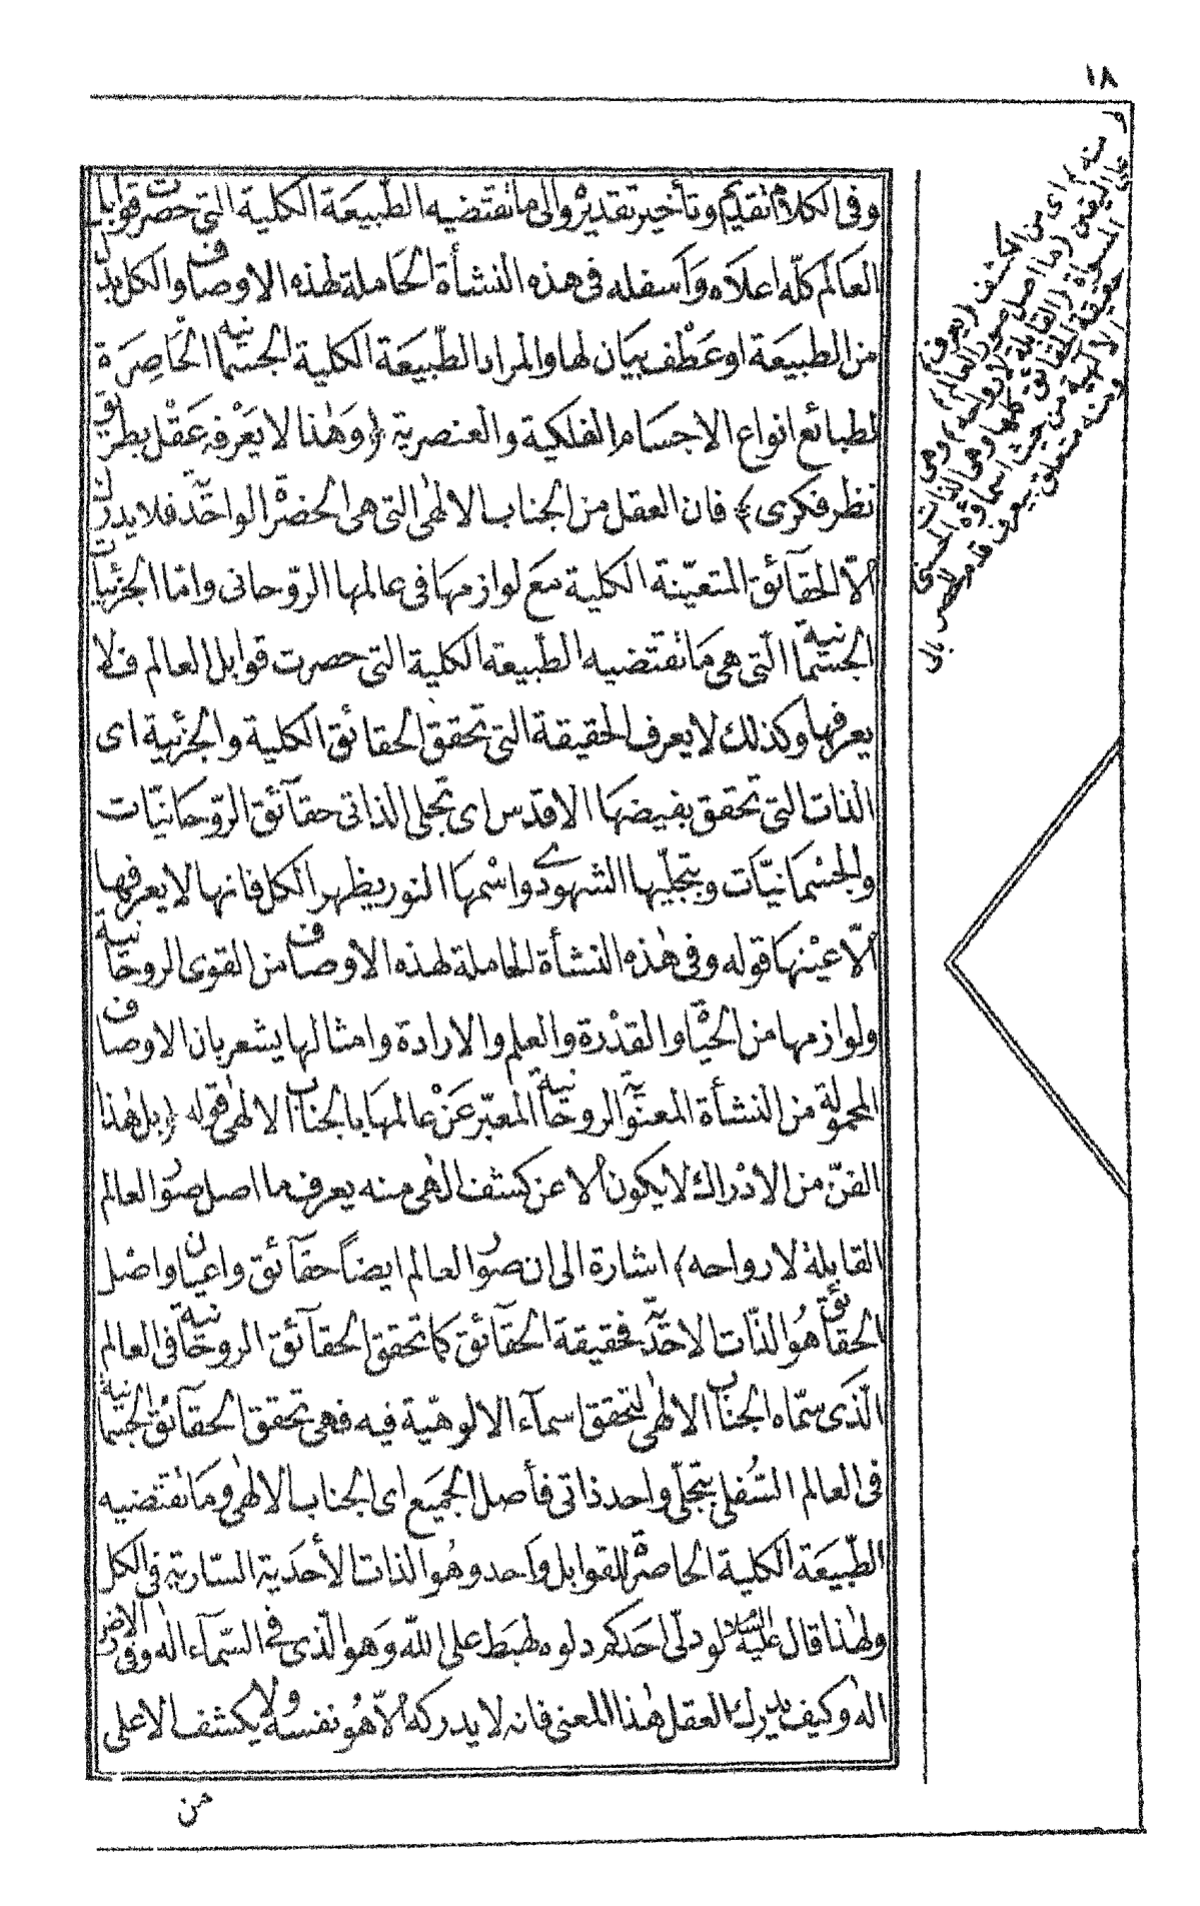 ١٨
وفى الكلام تقديم وتأخير تقديره والى ما تقتضيه الطّبيعة الكلية التى حصرت قوابل
العالم كلّه اعلاه وأسفله فى هذه النشأة الحاملة لهذه الاوصاف والكل بدل
من الطبيعة او عطف بيان لها والمراد الطّبيعة الكلية الجسمانية الحاصرة
لطبائع انواع الاجسام الفلكية والعنصرية ﴿ وهٰذا لا يعرفه عقل بطريق
نظر فكرى ﴾ فان العقل من الجناب الالهٰى التى هى الحضرة الواحدية فلا يدرك
الّا الحقآئق المتعيّنة الكلية مع لوازمها فى عالمها الرّوحانى وامّا الجزئيات
الجسمانية الّتى هى ما تقتضيه الطّبيعة الكلية التى حصرت قوابل العالم فلا
يعرفها وكذلك لا يعرف الحقيقة التى تحقق الحقائق الكلية والجزئية اى
الذات التى تحقق بفيضها الاقدس اى تجلى الذاتى حقآئق الرّوحانيّات
والجسمانيّات وبتجلّيها الشهودى واسمها النور يظهر الكل فانها لا يعرفها
الّا عينها قوله وفى هٰذه النشأة الحاملة لهذه الاوصاف من القوى الروحانية
ولوازمها من الحيوة والقدرة والعلم والارادة وامثالها يشعر بان الاوصاف
المحمولة من النشأة المعنوية الروحانية المعبّر عن عالمها بالجناب الالهٰى قوله ﴿ بل هٰذا
الفنّ من الادراك لا يكون الا عن كشف الٰهى منه يعرف ما اصل صور العالم
القابلة لارواحه ﴾ اشارة الى ان صور العالم ايضاً حقآئق واعيان واصل
الحقائق هو الذّات الاحدّية فحقيقة الحقآئق كما تحقق الحقآئق الروحانية فى العالم
الّذى سمّاه الجناب الالهٰى لتحقق اسمآء الالوهيّة فيه فهى تحقق الحقآئق الجسمانية
فى العالم السّفلى بتجلّى واحد ذاتى فأصل الجميع اى الجناب الالهٰى وما تقتضيه
الطّبيعة الكلية الحاصرة للقوابل واحد وهو الذات الأحدية السّارية فى الكل
ولهٰذا قال عليه السلام لو دلّى احدكم دلوه لهبط على اللّه وهو الّذى فى السّمآء الٰه وفى الارض
الٰه وكيف يدرك العقل هٰذا المعنى فانه لا يدركه الّا هو نفسه ولا يكشف الا على
من
منه اى من الكشف (يعرف)
على اليقين (ما اصل صور العالم)
السواة (القابلة لارواحه) وهى
حقيقة الحقائق كلها وهى الذات
الالهية من حيث اسماؤه الحسنى
ومنه متعلق بيعرف قدم للحصر
بالى